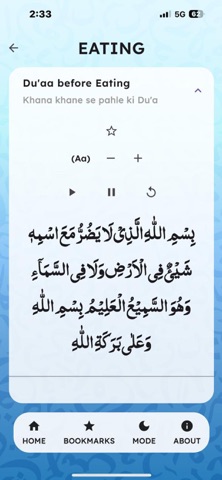 2:33
5G 62
EATING
Du'aa before Eating
Khana khane se pahle ki Du'a
(Aa) — +
بِسْمِ اللّٰهِ الَّذِىْ لَا يَضُرُّ مَعَ اسْمِهٖ
شَىْءٌ فِى الْاَرْضِ وَلَا فِى السَّمَآءِ
وَهُوَ السَّمِيْعُ الْعَلِيْمُ بِسْمِ اللّٰهِ
وَعَلٰى بَرَكَةِ اللّٰهِ
HOME BOOKMARKS MODE ABOUT